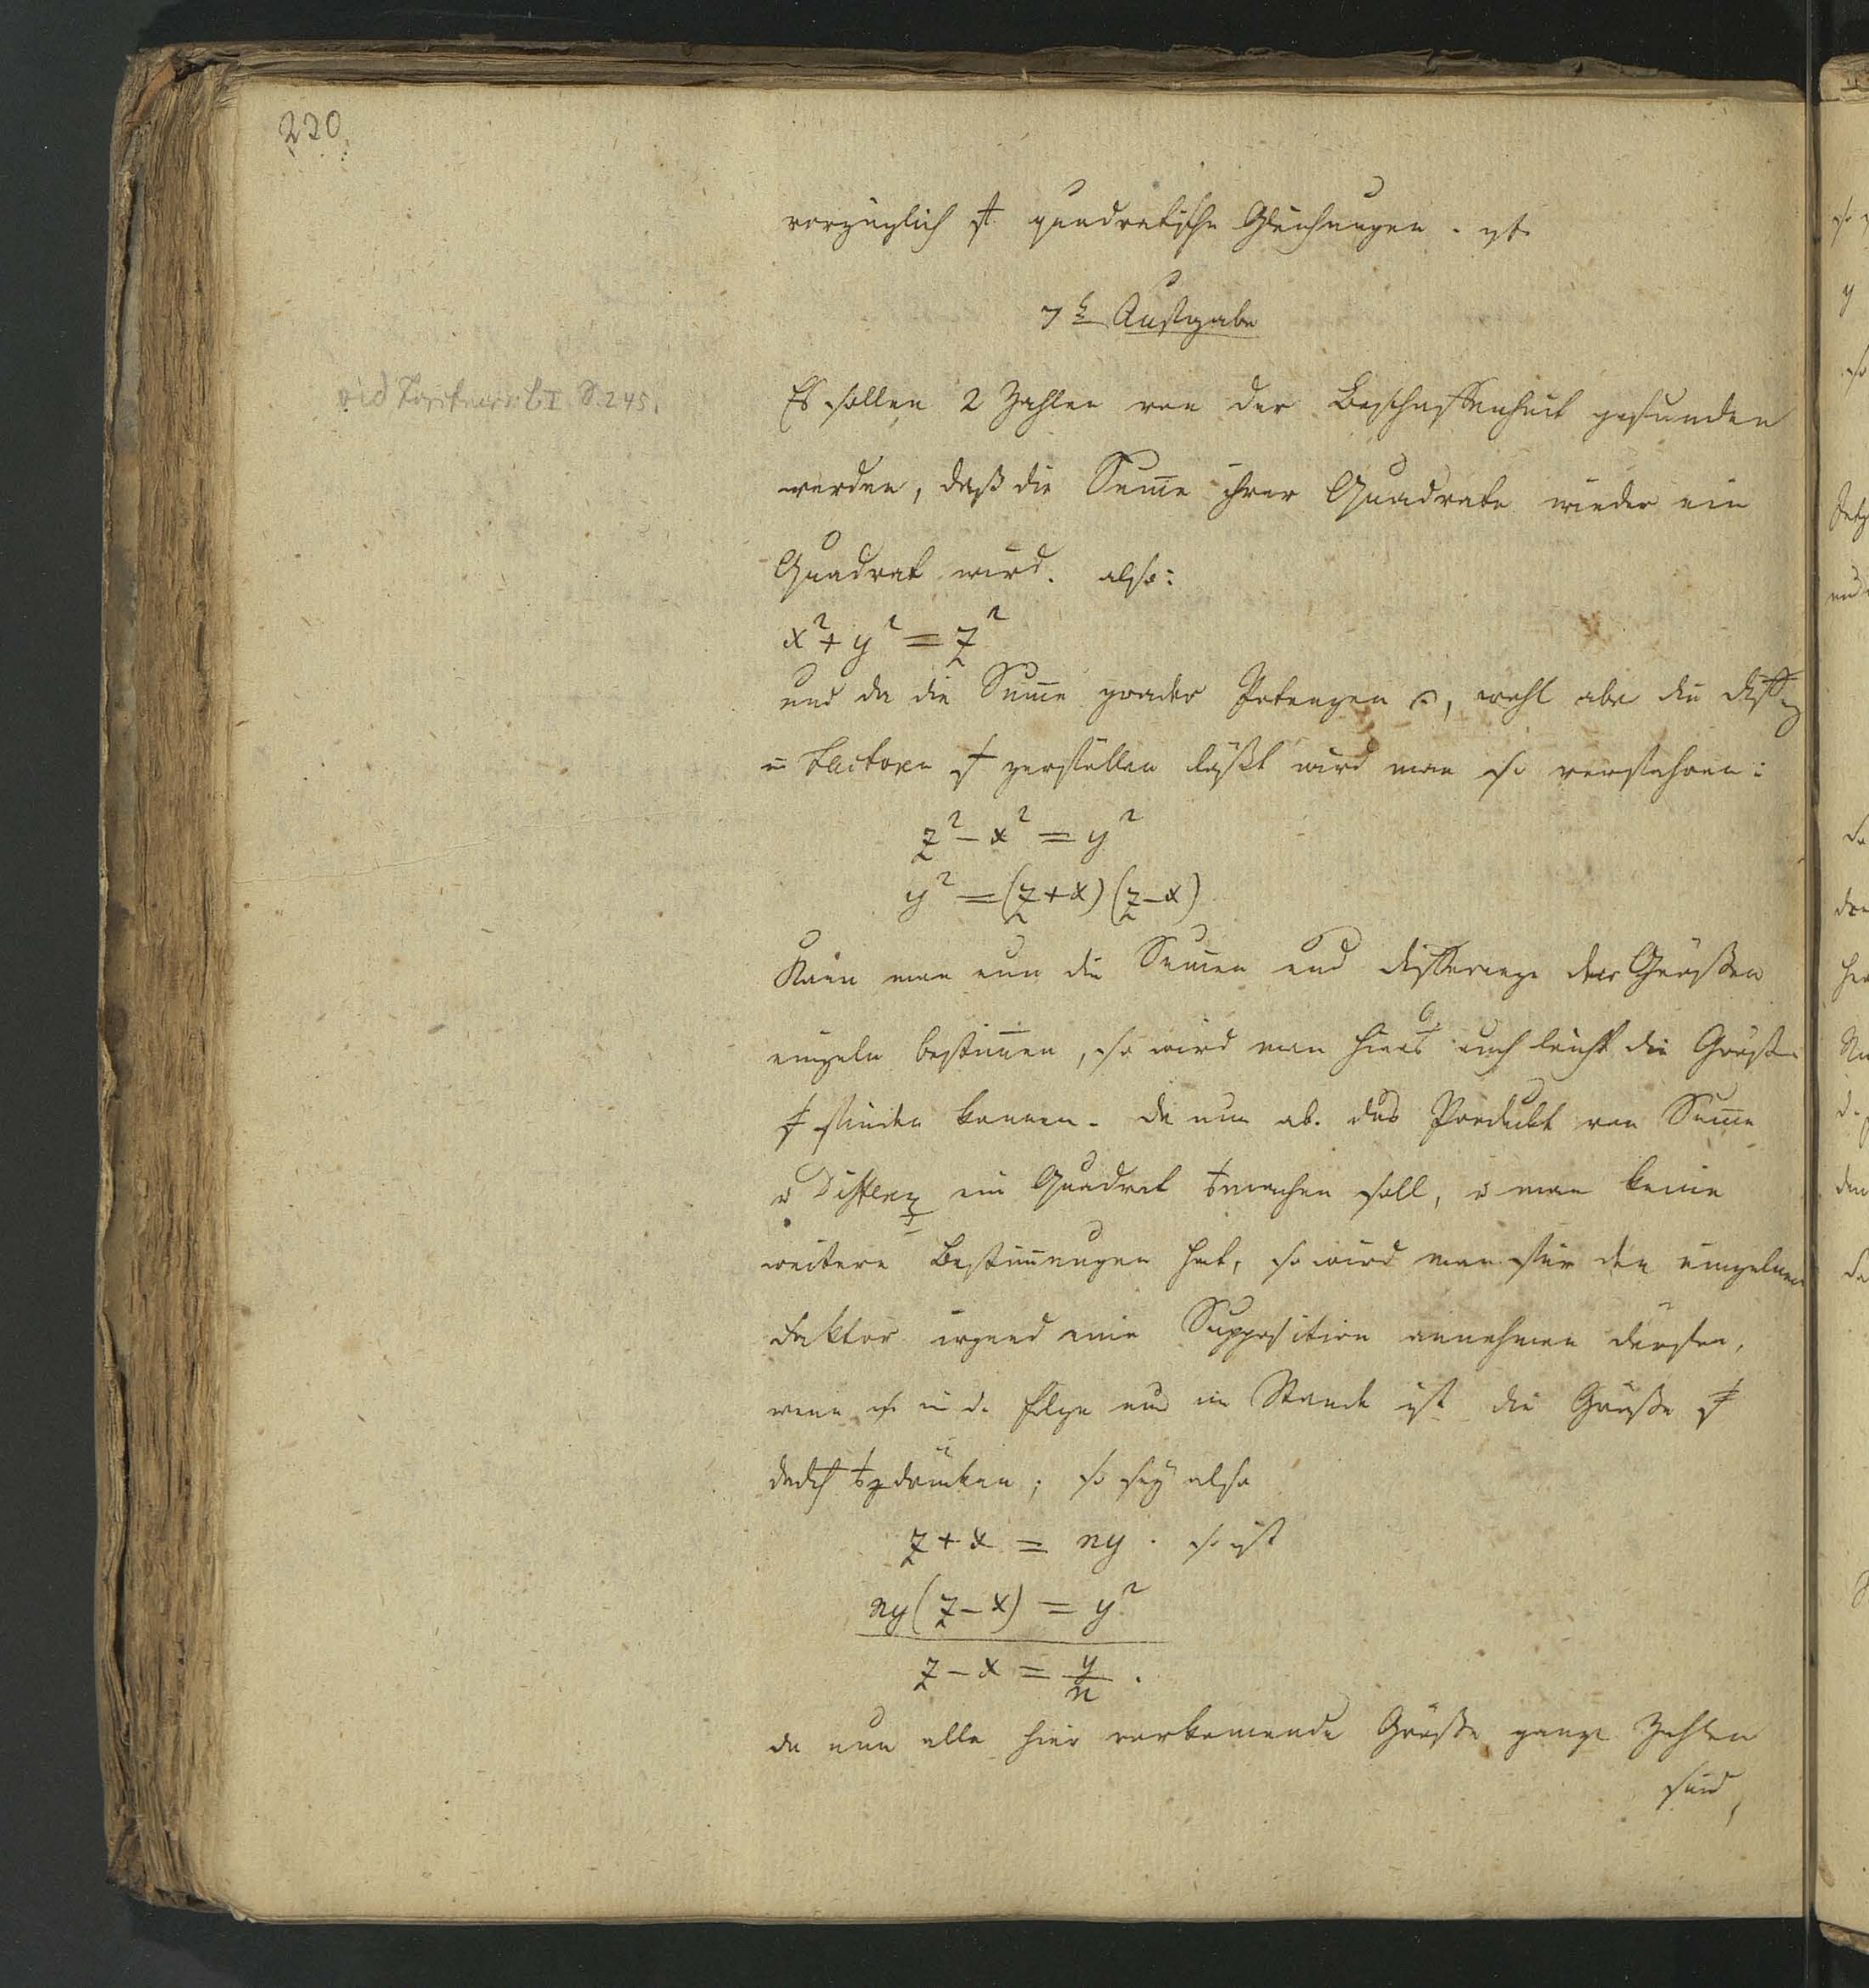 220
vorzüglich quadratische Gleichungen.
7te Aufgabe
vid S. 245.
Es sollen 2 Zahlen von der Beschaffenheit gefunden
werden, daß die Sum̅e ihrer Quadrate wieder ein
Quadrat wird. also:
x² + y² = z²
und da die Sum̅e grader Potenzen, wohl aber die Diff
in Factoren zerfällen läßt wird man so verfahren:
z² - x² = y²
y² = (z+x)(z-x)
Kan̅ man nun die Sum̅en und Differenze der Größen
einzeln bestim̅en, so wird man hieraus auch leicht die Größen
finden können. Da nun ab. das Produkt von Sum̅e
u Differenz ein Quadrat machen soll, u man keine
weitere Bestim̅ungen hat, so wird man für den einzelnen
Faktor irgend eine Supposition annehmen dürfen,
wenn in d. Folge nur im Stande ist die Größe
drücken; so sey also
z + x = ny. so ist
ny(z - x) = y²
z - x = y/n.
da nun alle hier vorkom̅ende Größe ganze Zahlen
sind,